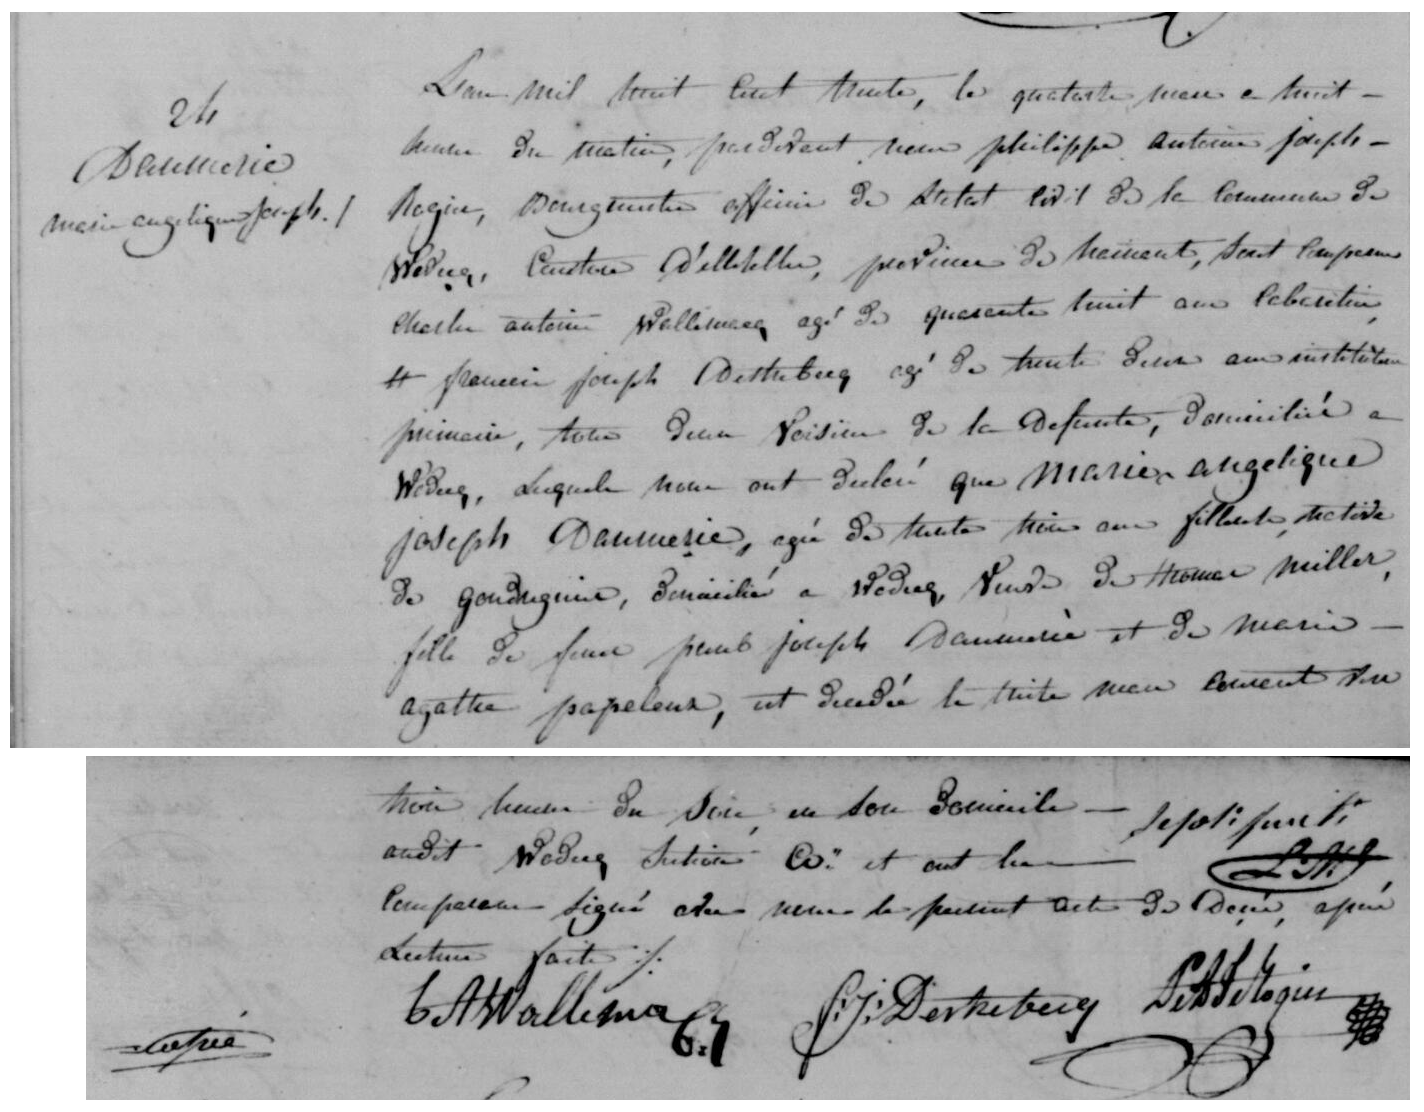 24
Daumerie
marie angelique joseph. /
L'an mil huit cent trente, le quatorze mars a huit -
heures du matin, pardevant nous philippe antoine joseph -
Rogier, Bourgmestre officier de l'etat civil de la commune de
Wodecq, Canton D'ellezelles, province de hainaut, sont comparus
Charles antoine Wallemacq agé de quarante huit ans cabaretier,
et francois joseph Desterbecq agé de trente deux ans instituteur
primaire, tous deux voisins de la Defunte, domiciliés a
Wodecq, Lesquels nous ont declaré que marie angelique
joseph Daumerie, agée de trente trois ans fileuse, native
de gondregnies, domiciliée a Wodecq, Veuve de thomas miller,
fille de feu pierre joseph Daumerie et de marie -
agathe papeleux, est decedée le treize mars courant vers
trois heures du soir, en son domicile —
audit Wodecq section et ont les —
comparans signé avec nous le present acte de Decès, après
Lecture faite ./.
C A Wallemacq
f: j: Desterbecq
Rogier
copié